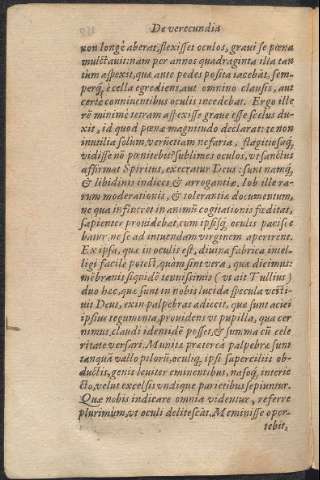 De verecundia
non longè aberat, flexisset oculos, graui se pœna
mulctauit: nam per annos quadraginta illa tan
tùm aspexit, quæ ante pedes posita iacebāt, sem-
perq́, è cella egrediens, aut omnino clausis, aut
certè conniuentibus oculis incedebat. Ergo ille
rē minimè tetram aspexisse graue esse scelus du-
xit, id quod pœnæ magnitudo declarat: te non
inutilia solum, verùm etiam nefaria, flagitiosaq́,
vidisse nō pœnitebit? sublimes oculos, vt sanctus
affirmat Spiritus, execratur Deus: sunt namq́,
& libidinis indices, & arrogantiæ. Iob ille ra-
rum moderationis, & tolerantiæ documentum,
ne qua influeret in animū cogitationis fœditas,
sapienter prouidebat, cum ipsisq́, oculis pacisce
batur, ne se ad intuendam virginem aperirent.
Ex ipsa, quæ in oculis est, diuina fabrica intel-
ligi facile potest, quàm sint vera, quæ diximus:
mēbranis siquidē tenuissimis (vt ait Tullius)
duo hæc, quæ sunt in nobis lucida specula vesti-
uit Deus, exin palpebras adiecit, quæ sunt aciei
ipsius tegumenta, prouidens vt pupilla, qua cer
nimus, claudi identidē posset, & summa cū cele
ritate versari. Munitæ præterea palpebræ sunt
tanquā vallo pilorū, oculiq́, ipsi superciliis ob-
ductis, genis leuiter eminentibus, nasoq́, interie
cto, velut excelsis vndique parietibus sepiuntur.
Quæ nobis indicare omnia videntur, referre
plurimùm, vt oculi delitescāt. Meminisse opor-
tebit,